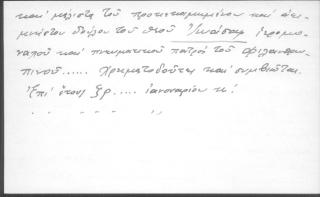 καὶ μάλιστα τοῦ προτετιμημένου καὶ ἀει-
μνήστου δούλου τοῦ θεοῦ Ἰωάσαφ ἱερομο-
νάχου καὶ πνευματικοῦ πατρὸς τοῦ Φιλανθρω-
πινοῦ...... Χρηματοδοῦται καὶ συμβιῶται.
Ἐπὶ ἔτους ζρ..... ἰανουαρίου κ΄.